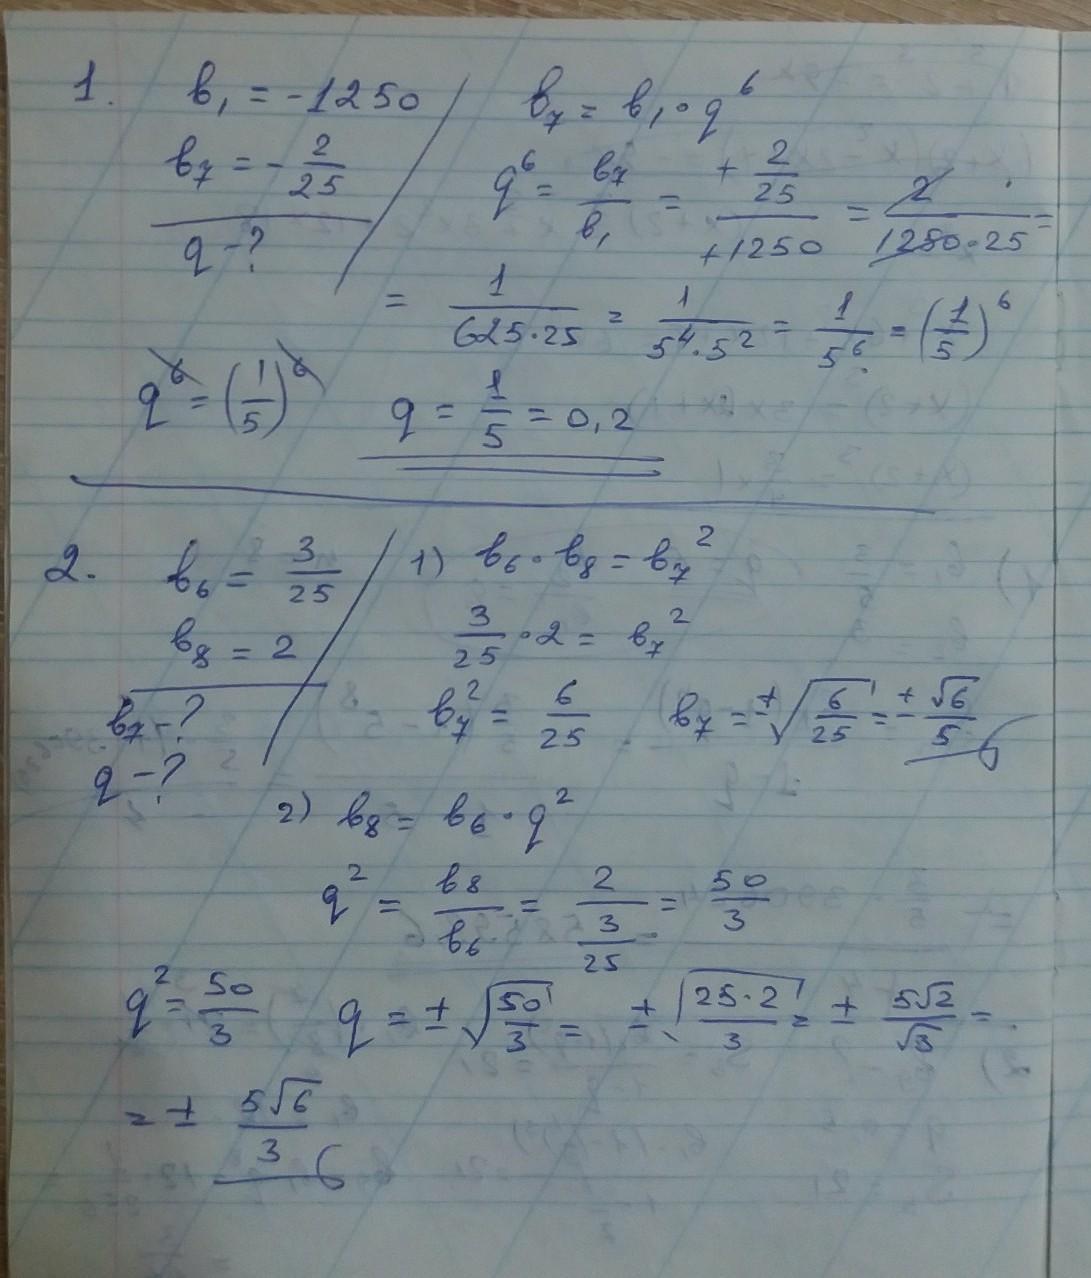 1. b₁ = -1250
b₇ = - 2/25
q - ?
b₇ = b₁ · q⁶
q⁶ = b₇/b₁ = (+ 2/25)/(+1250) = 2/(1250·25) =
= 1/(625·25) = 1/(5⁴·5²) = 1/5⁶ = (1/5)⁶
q⁶ = (1/5)⁶ q = 1/5 = 0,2
2. b₆ = 3/25
b₈ = 2
b₇ - ?
q - ?
1) b₆ · b₈ = b₇²
3/25 · 2 = b₇²
b₇² = 6/25 b₇ = ±√(6/25) = ± √6/5
2) b₈ = b₆ · q²
q² = b₈/b₆ = 2/(3/25) = 50/3
q² = 50/3 q = ± √(50/3) = ± √(25·2/3) = ± 5√2/√3 =
= ± 5√6/3